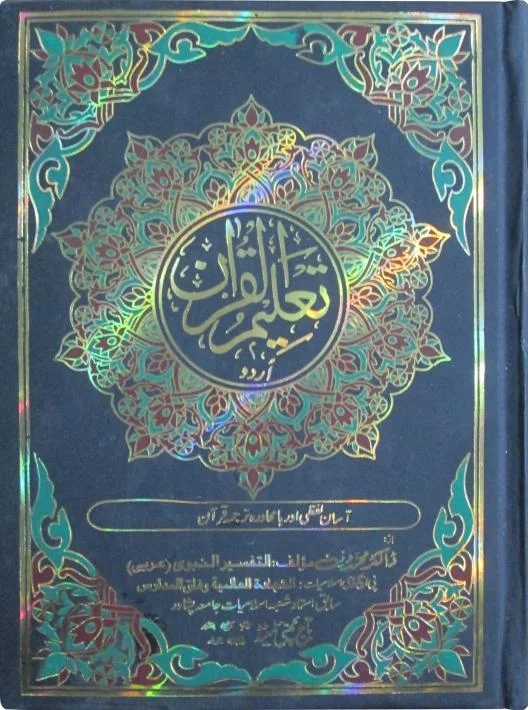 تعلیم القرآن
اُردو
آسان لفظی اور بامحاورہ ترجمہ قرآن
از
ڈاکٹر محمد مؤلف: التفسير النبوي (عربی)
پی ایچ ڈی اسلامیات: الشهادة العالمية وفاق المدارس
سابق استاذ شعبہ اسلامیات جامعہ پشاور
تاج کمپنی لمیٹڈ